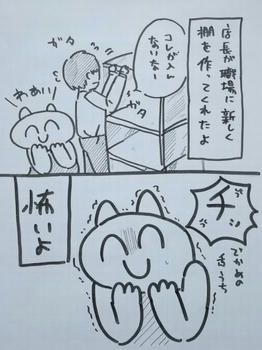 店長が職場に新しく
棚を作ってくれたよ
コレが入ん
ないなー
ガタ
ガタ
わぁい
チッ
でかめの
舌うち
怖いよ